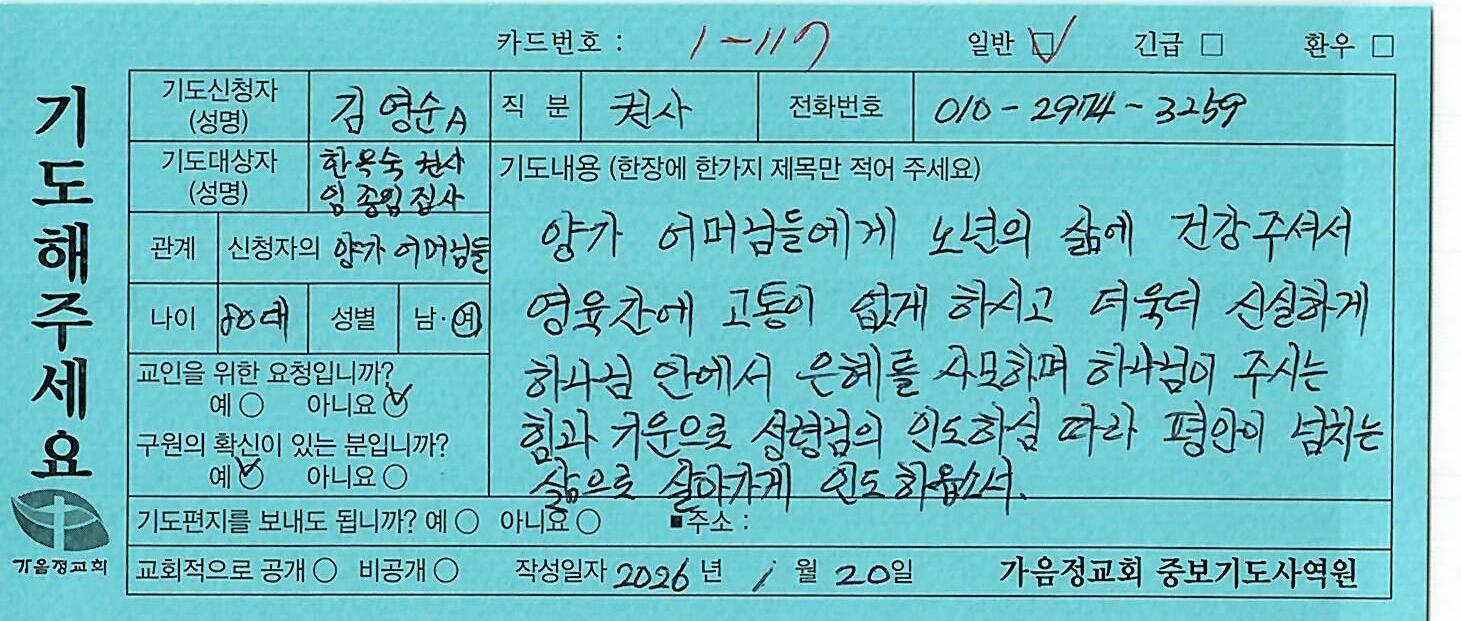 기도해주세요
가음정교회
카드번호 : 1-117 일반 ☑ 긴급 □ 환우 □
기도신청자 (성명) 김영순A 직 분 권사 전화번호 010-2974-3259
기도대상자 (성명) 한옥숙 권사 임종임 집사
관계 신청자의 양가 어머님들
나이 80대 성별 남·여
교인을 위한 요청입니까?
예 ○ 아니요 ✓
구원의 확신이 있는 분입니까?
예 ✓ 아니요 ○
기도내용 (한장에 한가지 제목만 적어 주세요)
양가 어머님들에게 노년의 삶에 건강주셔서
영육간에 고통이 없게 하시고 더욱더 신실하게
하나님 안에서 은혜를 사모하며 하나님이 주시는
힘과 기운으로 성령님의 인도하심 따라 평안이 넘치는
삶으로 살아가게 인도하옵소서.
기도편지를 보내도 됩니까? 예 ○ 아니요 ○ ■주소 :
교회적으로 공개 ○ 비공개 ○ 작성일자 2026 년 1 월 20 일 가음정교회 중보기도사역원